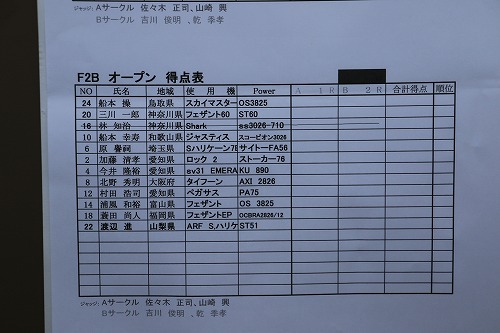 ジャッジ: Aサークル 佐々木 正司、山崎 興
Bサークル 吉川 俊明 、乾 季孝
F2B オープン 得点表
NO 氏名 地域 使用機 Power A 1R B 2R 合計得点 順位
24 船本 操 鳥取県 スカイマスター OS3825
20 三川 一郎 神奈川県 フェザント60 ST60
16 林 知治 神奈川県 Shark ss3026-710
10 船本 幸寿 和歌山県 ジャスティス スコーピオン3026
6 原 誉嗣 埼玉県 Sハリケーン7E サイトーFA56
2 加藤 清孝 愛知県 ロック 2 ストーカー76
4 今井 隆裕 愛知県 sv31 EMERA KU 890
8 北野 秀明 大阪府 タイフーン AXI 2826
12 村田 浩司 愛知県 ペガサス PA75
14 浦風 和裕 富山県 フェザント OS 3825
18 蓑田 尚人 福岡県 フェザントEP OCBRA2826/12
22 渡辺 進 山梨県 ARF S,ハリケ ST51
ジャッジ: Aサークル 佐々木 正司、山崎 興
Bサークル 吉川 俊明 、乾 季孝